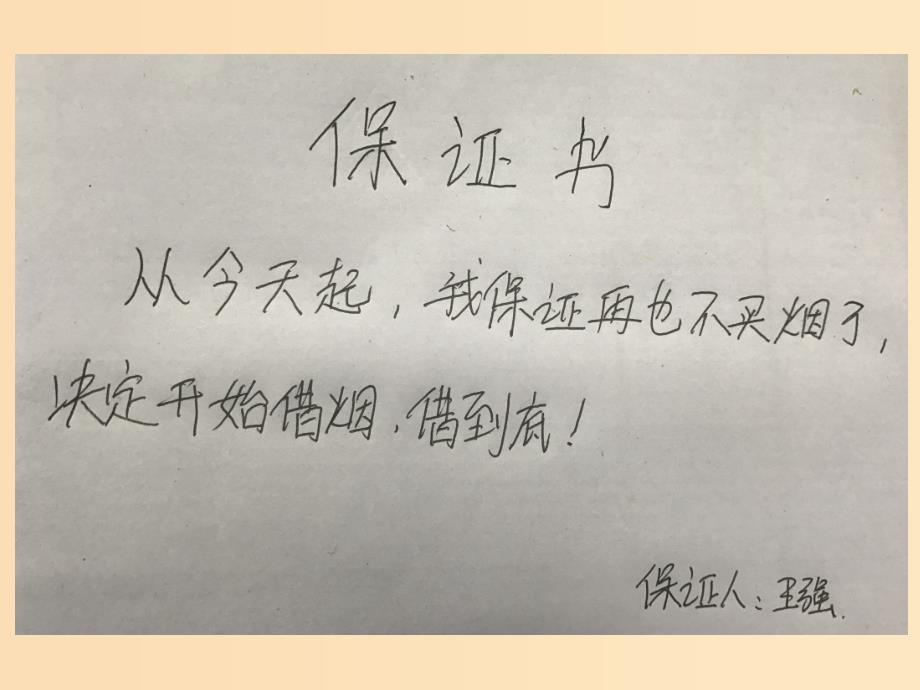 保证书
从今天起，我保证再也不买烟了，
决定开始借烟，借到底！
保证人：王强.